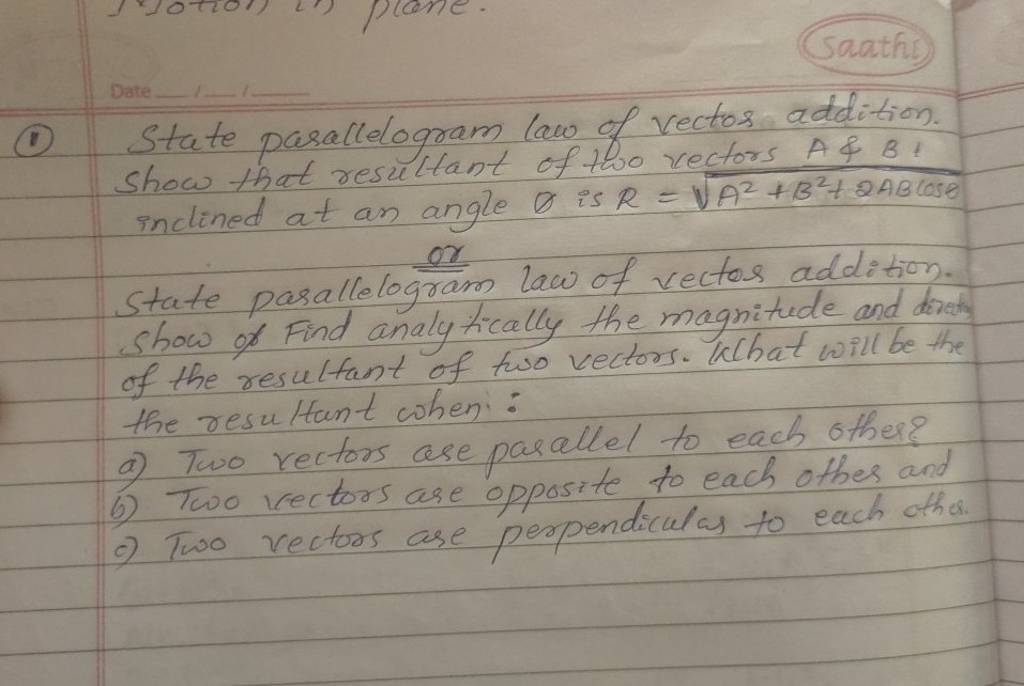 Motion in plane.
Saathi
Date __/__/____
① State parallelogram law of vector addition.
Show that resultant of two vectors A & B !
inclined at an angle θ is R = √A² + B² + 2AB Cosθ
or
State parallelogram law of vector addition.
show of Find analytically the magnitude and direction
of the resultant of two vectors. What will be the
the resultant when :
a) Two vectors are parallel to each other?
b) Two vectors are opposite to each other and
c) Two vectors are perpendicular to each other.